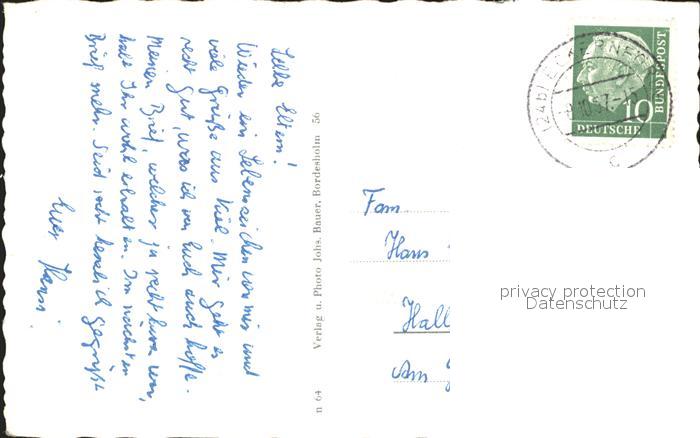 Liebe Eltern!
Wieder ein Lebenszeichen von mir und
viele Grüße aus Kiel. Mir geht es
recht gut, was ich von Euch auch hoffe.
Meinen Brief, welcher ja recht kurz war,
habt Ihr wohl erhalten. Im nächsten
Brief mehr. Seid recht herzlich gegrüßt
Euer Hansi.
n 64 Verlag u. Photo Johs. Bauer, Bordesholm 56
(24b) ECKERNF
10.57
10
DEUTSCHE
BUNDESPOST
Fam.
Hans
Hall
Am
privacy protection
Datenschutz